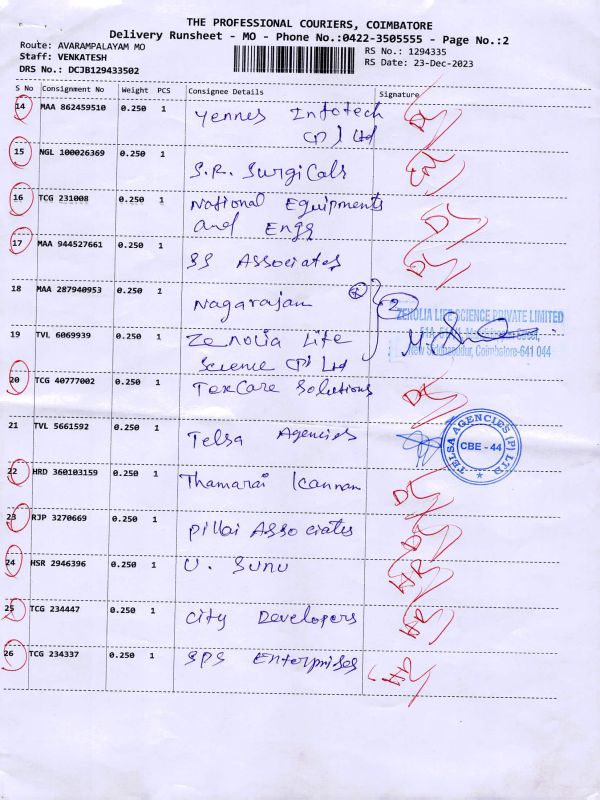 THE PROFESSIONAL COURIERS, COIMBATORE
Delivery Runsheet - MO - Phone No.:0422-3505555 - Page No.:2
Route: AVARAMPALAYAM MO
Staff: VENKATESH
DRS No.: DCJB129433502
RS No.: 1294335
RS Date: 23-Dec-2023
S No Consignment No Weight PCS Consignee Details Signature
14 MAA 862459510 0.250 1 Yennes Infotech
(P) Ltd DL
15 NGL 100026369 0.250 1 S.R. Surgicals
16 TCG 231008 0.250 1 National Equipments
and Engg DL
17 MAA 944527661 0.250 1 SS Associates DL
18 MAA 287940953 0.250 1 Nagarajan 2
19 TVL 6069939 0.250 1 Zenolia Life
Science (P) Ltd
ZENOLIA LIFE SCIENCE PRIVATE LIMITED
New Siddhapudur, Coimbatore-641 044
20 TCG 40777002 0.250 1 TexCare Solutions DL
21 TVL 5661592 0.250 1 Telsa Agencies
TELSA AGENCIES (P) LTD
CBE - 44
22 HRD 360103159 0.250 1 Thamarai Kannan DL
23 RJP 3270669 0.250 1 Pillai Associates DL
24 HSR 2946396 0.250 1 U. Sunu HR
25 TCG 234447 0.250 1 City Developers HR
26 TCG 234337 0.250 1 SPS Enterprises HR